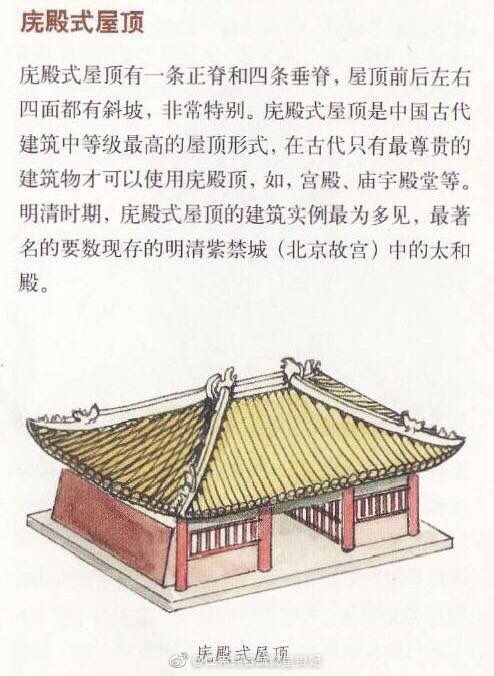 庑殿式屋顶
庑殿式屋顶有一条正脊和四条垂脊，屋顶前后左右
四面都有斜坡，非常特别。庑殿式屋顶是中国古代
建筑中等级最高的屋顶形式，在古代只有最尊贵的
建筑物才可以使用庑殿顶，如，宫殿、庙宇殿堂等。
明清时期，庑殿式屋顶的建筑实例最为多见，最著
名的要数现存的明清紫禁城（北京故宫）中的太和
殿。
庑殿式屋顶